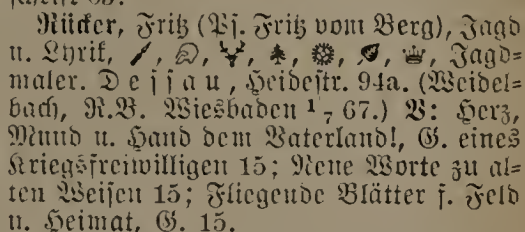 Rücker, Fritz (Pſ. Fritz vom Berg), Jagd
u. Lyrik, Jagd-
maler. Deſſau, Heideſtr. 94a. (Weidel-
bach, R.B. Wiesbaden 1/7 67.) V: Herz,
Mund u. Hand dem Vaterland!, G. eines
Kriegsfreiwilligen 15; Neue Worte zu al-
ten Weiſen 15; Fliegende Blätter f. Feld
u. Heimat, G. 15.